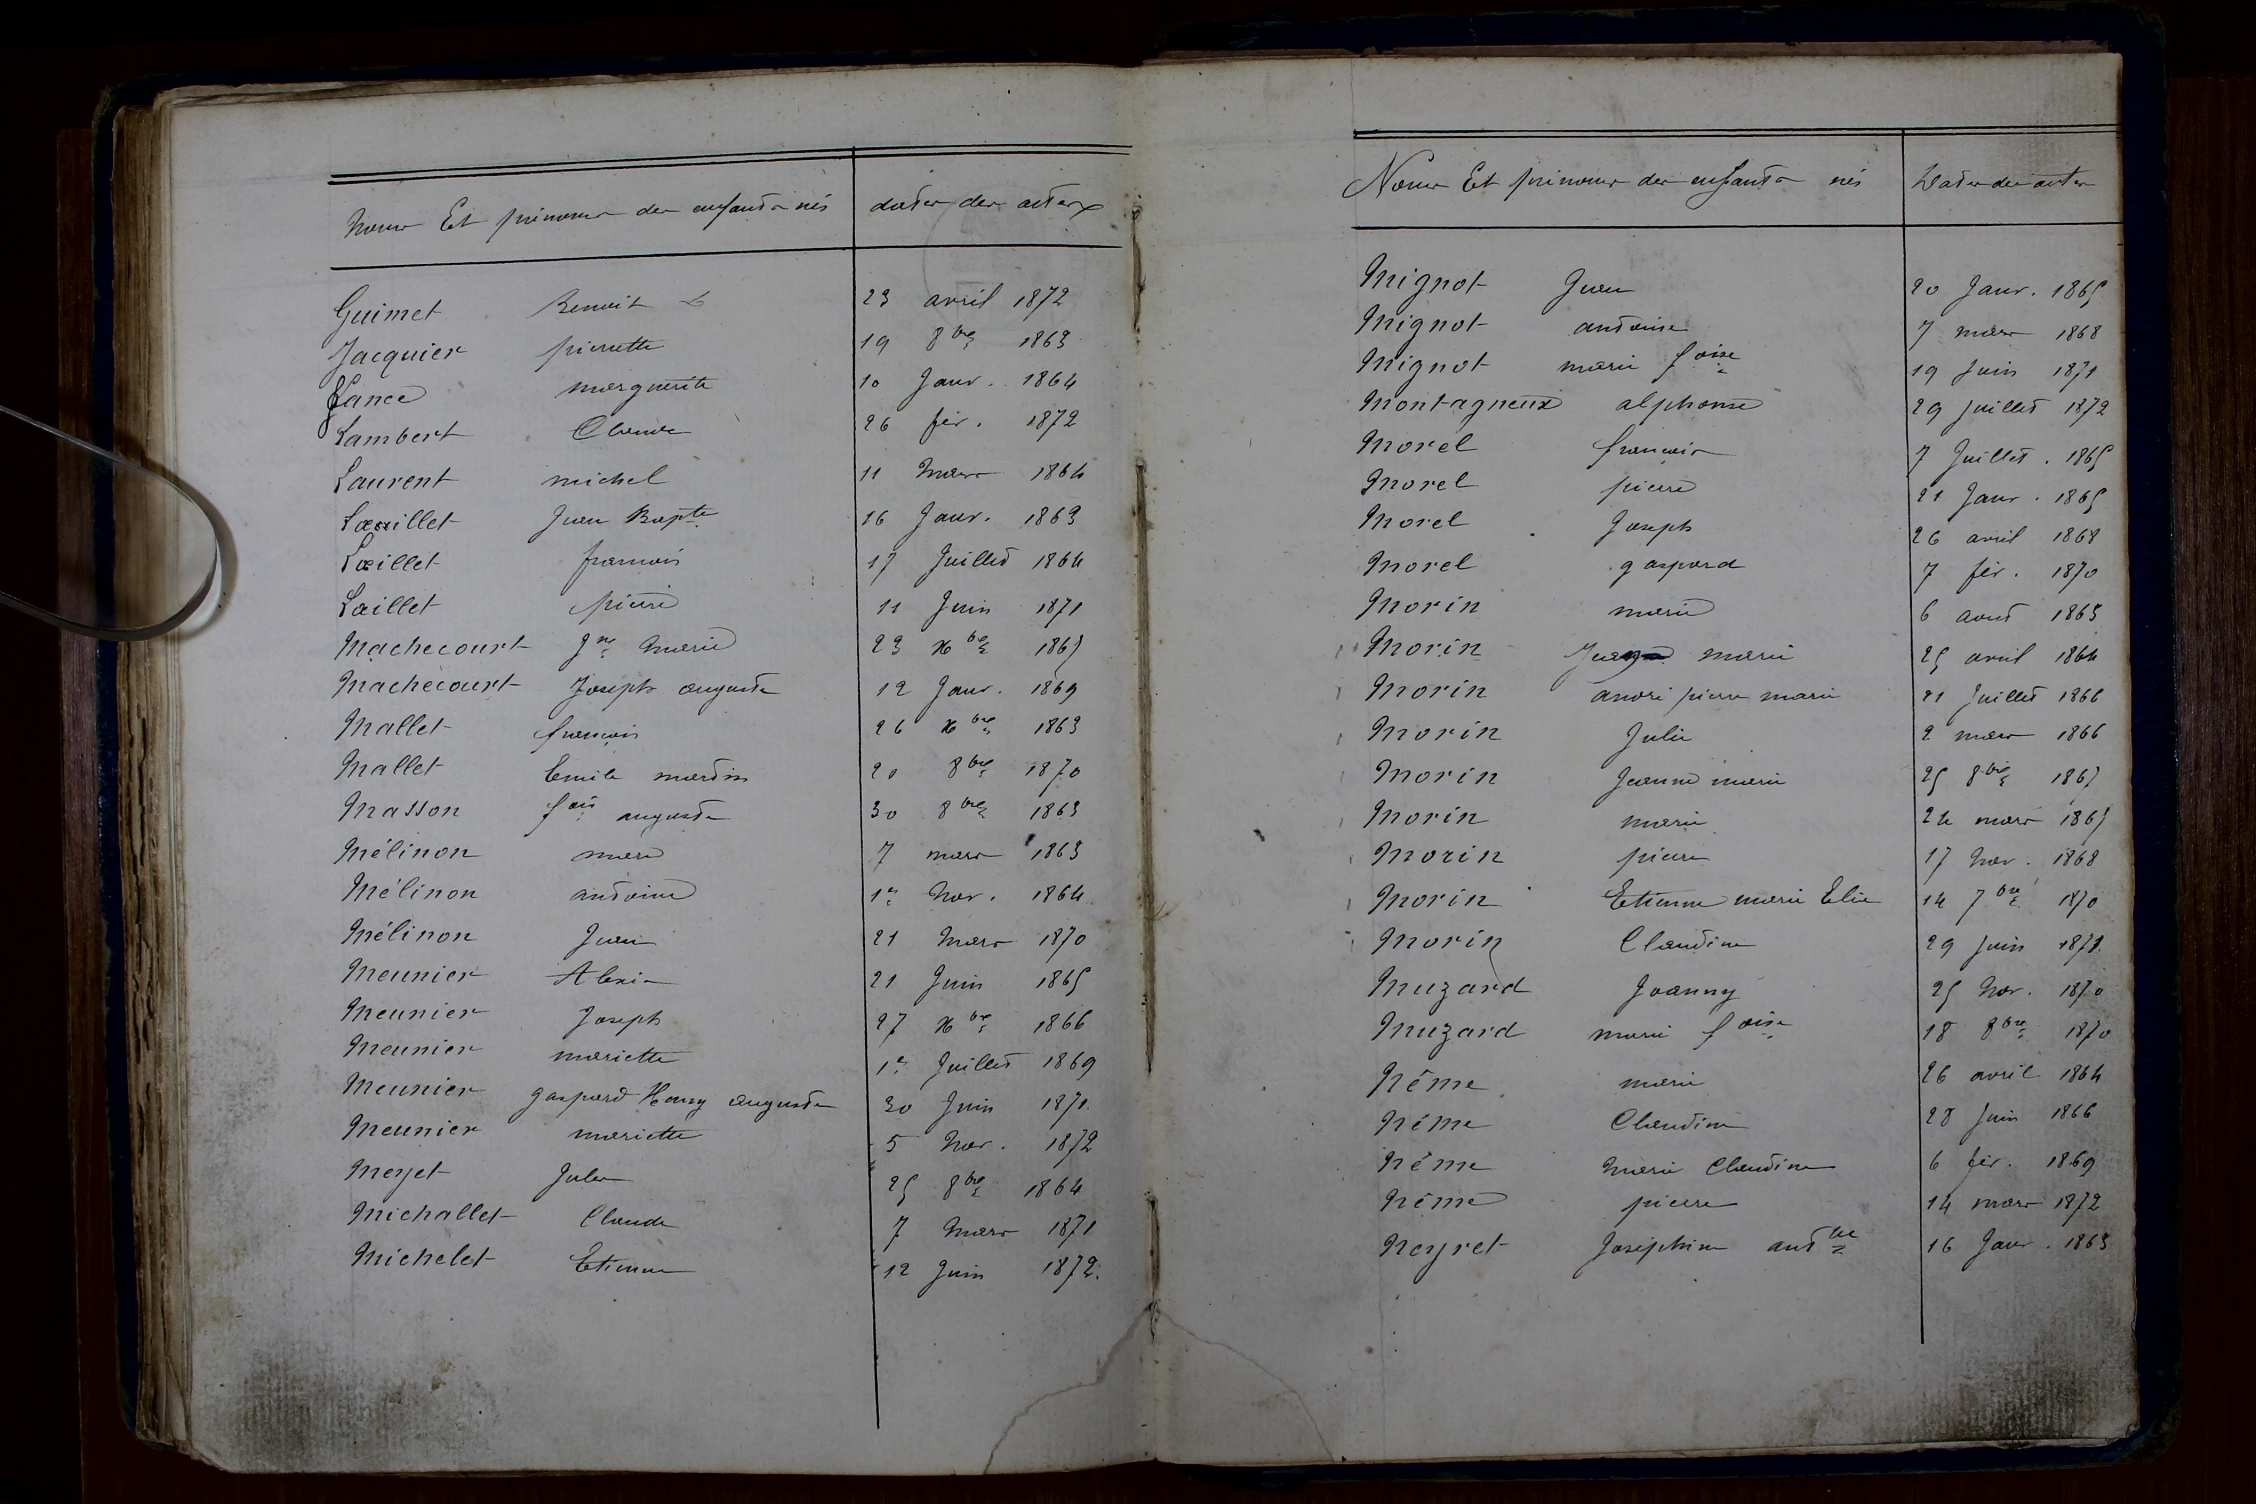 Noms Et prénoms des enfants nés dates des actes
Guimet Benoit 23 avril 1872
Jacquier pierrette 19 8bre 1863
Lance marguerite 10 Janv. 1864
Lambert Claude 26 fév. 1872
Laurent michel 11 Mars 1864
Jean Bapte 16 Janv. 1863
Lœillet francois 17 Juillet 1864
Lœillet pierre 11 Juin 1871
Machecourt Jne Marie 23 Xbre 1865
Machecourt Joseph auguste 12 Janv. 1869
Mallet francois 26 Xbre 1863
Mallet Emile martin 20 8bre 1870
Masson fois auguste 30 8bre 1863
Mélinon marie 7 mars 1863
Mélinon antoine 1er Nov. 1864
Mélinon Jean 21 Mars 1870
Meunier Alexis 21 Juin 1865
Meunier Joseph 27 Xbre 1866
Meunier mariette 1er Juillet 1869
Meunier gaspard Henry auguste 30 Juin 1871
Meunier mariette 5 Nov. 1872
Meyet Jules 25 8bre 1864
Michallet Claude 7 Mars 1871
Michelet Etienne 12 Juin 1872.
Noms Et prénoms des enfants nés Dates des actes
Mignot Jean 20 Janv. 1865
Mignot antoine 7 mars 1868
Mignot marie foise 19 Juin 1871
Montagneux alphonse 29 juillet 1872
Morel francois 7 Juillet. 1865
Morel pierre 21 Janv. 1865
Morel Joseph 26 avril 1868
Morel gaspard 7 fév. 1870
Morin marie 6 aout 1863
Morin marie 25 avril 1864
Morin andré pierre marie 21 Juillet 1866
Morin Julie 2 mars 1866
Morin Jeanne marie 25 8bre 1867
Morin marie 24 mars 1865
Morin pierre 17 Nov. 1868
Morin Etienne marie Elie 14 7bre 1870
Morin Claudine 29 Juin 1871
Muzard Joanny 25 Nov. 1870
Muzard marie foise 18 8bre 1870
Néme marie 26 avril 1864
Néme Claudine 28 Juin 1866
Néme Marie Claudine 6 fév. 1869
Néme pierre 14 mars 1872
Neyret Joséphine antne 16 Janv. 1863